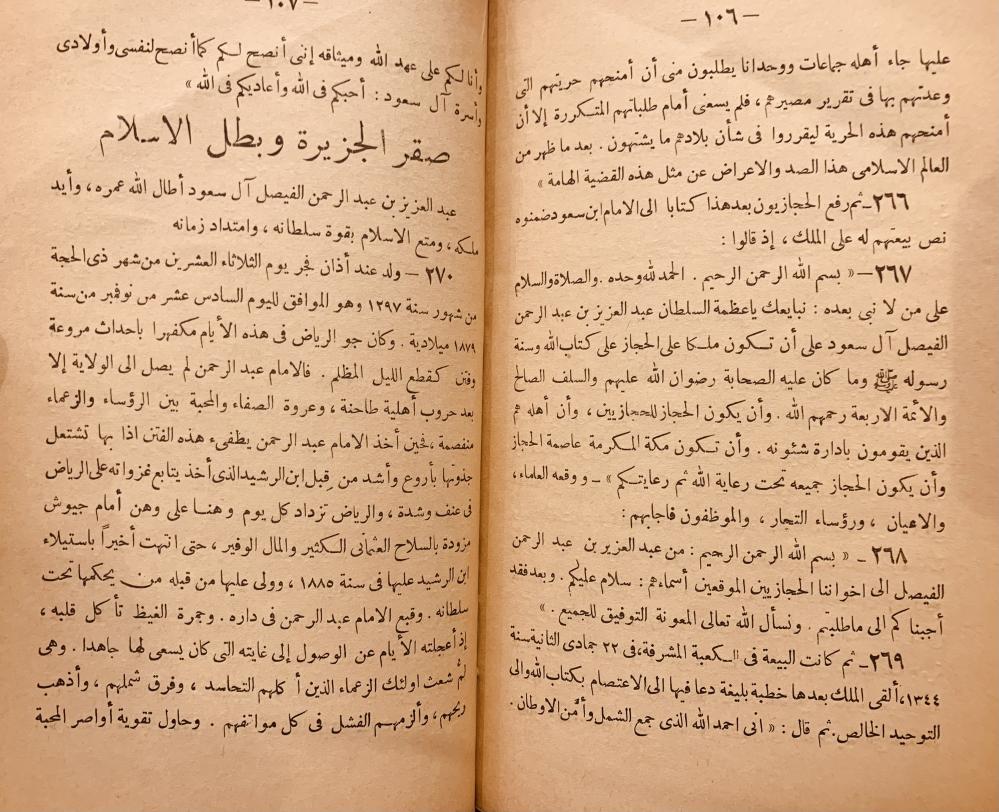 — ١٠٦ —
عليها جاء أهله جماعات ووحدانا يطلبون منى أن أمنحهم حريتهم التى
وعدتهم بها فى تقرير مصيرهم، فلم يسعنى أمام طلباتهم المتكررة إلا أن
أمنحهم هذه الحرية ليقرروا فى شأن بلادهم ما يشتهون . بعد ما ظهر من
العالم الاسلامى هذا الصد والاعراض عن مثل هذه القضية الهامة »
٢٦٦ــ ثم رفع الحجازيون بعد هذا كتابا الى الامام ابن سعود ضمنوه
نص بيعتهم له على الملك ، إذ قالوا :
٢٦٧ــ « بسم الله الرحمن الرحيم . الحمد لله وحده . والصلاة والسلام
على من لا نبى بعده : نبايعك ياعظمة السلطان عبد العزيز بن عبد الرحمن
الفيصل آل سعود على أن تكون ملكا على الحجاز على كتاب الله وسنة
رسوله ﷺ وما كان عليه الصحابة رضوان الله عليهم والسلف الصالح
والأئمة الاربعة رحمهم الله . وأن يكون الحجاز للحجازيين ، وأن أهله هم
الذين يقومون بادارة شئونه . وأن تكون مكة المكرمة عاصمة الحجاز
وأن يكون الحجاز جميعه تحت رعاية الله ثم رعايتكم » ــ ووقعه العلماء ،
والاعيان ، ورؤساء التجار ، والموظفون فاجابهم :
٢٦٨ ــ « بسم الله الرحمن الرحيم : من عبد العزيز بن عبد الرحمن
الفيصل الى اخواننا الحجازيين الموقعين أسماءهم : سلام عليكم . وبعد فقد
أجبناكم الى ماطلبتم . ونسأل الله تعالى المعونة التوفيق للجميع . »
٢٦٩ــ ثم كانت البيعة فى الكعبة المشرفة، فى ٢٢ جمادى الثانية سنة
١٣٤٤، ألقى الملك بعدها خطبة بليغة دعا فيها الى الاعتصام بكتاب الله والى
التوحيد الخالص. ثم قال : « انى احمد الله الذى جمع الشمل وأمّن الاوطان .
— ١٠٧ —
وأنا لكم على عهد الله وميثاقه إننى أنصح لكم كما أنصح لنفسى وأولادى
وأسرة آل سعود : أحبكم فى الله وأعاديكم فى الله »
صقر الجزيرة وبطل الاسلام
عبد العزيز بن عبد الرحمن الفيصل آل سعود أطال الله عمره ، وأيد
ملكه ، ومتع الاسلام بقوة سلطانه ، وامتداد زمانه
٢٧٠ – ولد عند أذان فجر يوم الثلاثاء العشرين من شهر ذى الحجة
من شهور سنة ١٢٩٧ وهو الموافق لليوم السادس عشر من نوفمبر من سنة
١٨٧٩ ميلادية . وكان جو الرياض فى هذه الأيام مكفهرا باحداث مروعة
وفتن كقطع الليل المظلم . فالامام عبد الرحمن لم يصل الى الولاية إلا
بعد حروب أهلية طاحنة ، وعروة الصفاء والمحبة بين الرؤساء والزعماء
منفصمة ، فحين أخذ الامام عبد الرحمن يطفىء هذه الفتن اذا بها تشتعل
جذوتها بأروع وأشد من قِبل ابن الرشيد الذى أخذ يتابع غزواته على الرياض
فى عنف وشدة ، والرياض تزداد كل يوم وهنا على وهن أمام جيوش
مزودة بالسلاح العثمانى الكثير والمال الوفير ، حتى انتهت أخيراً باستيلاء
ابن الرشيد عليها فى سنة ١٨٨٥ ، وولى عليها من قبله من يحكمها تحت
سلطانه . وقبع الامام عبد الرحمن فى داره . وجمرة الغيظ تأكل قلبه ،
إذ أعجلته الأيام عن الوصول إلى غايته التى كان يسعى لها جاهدا . وهى
لمُّ شعث اولئك الزعماء الذين أكلهم التحاسد ، وفرق شملهم ، وأذهب
ريحهم ، وألزمهم الفشل فى كل مواقفهم . وحاول تقوية أواصر المحبة